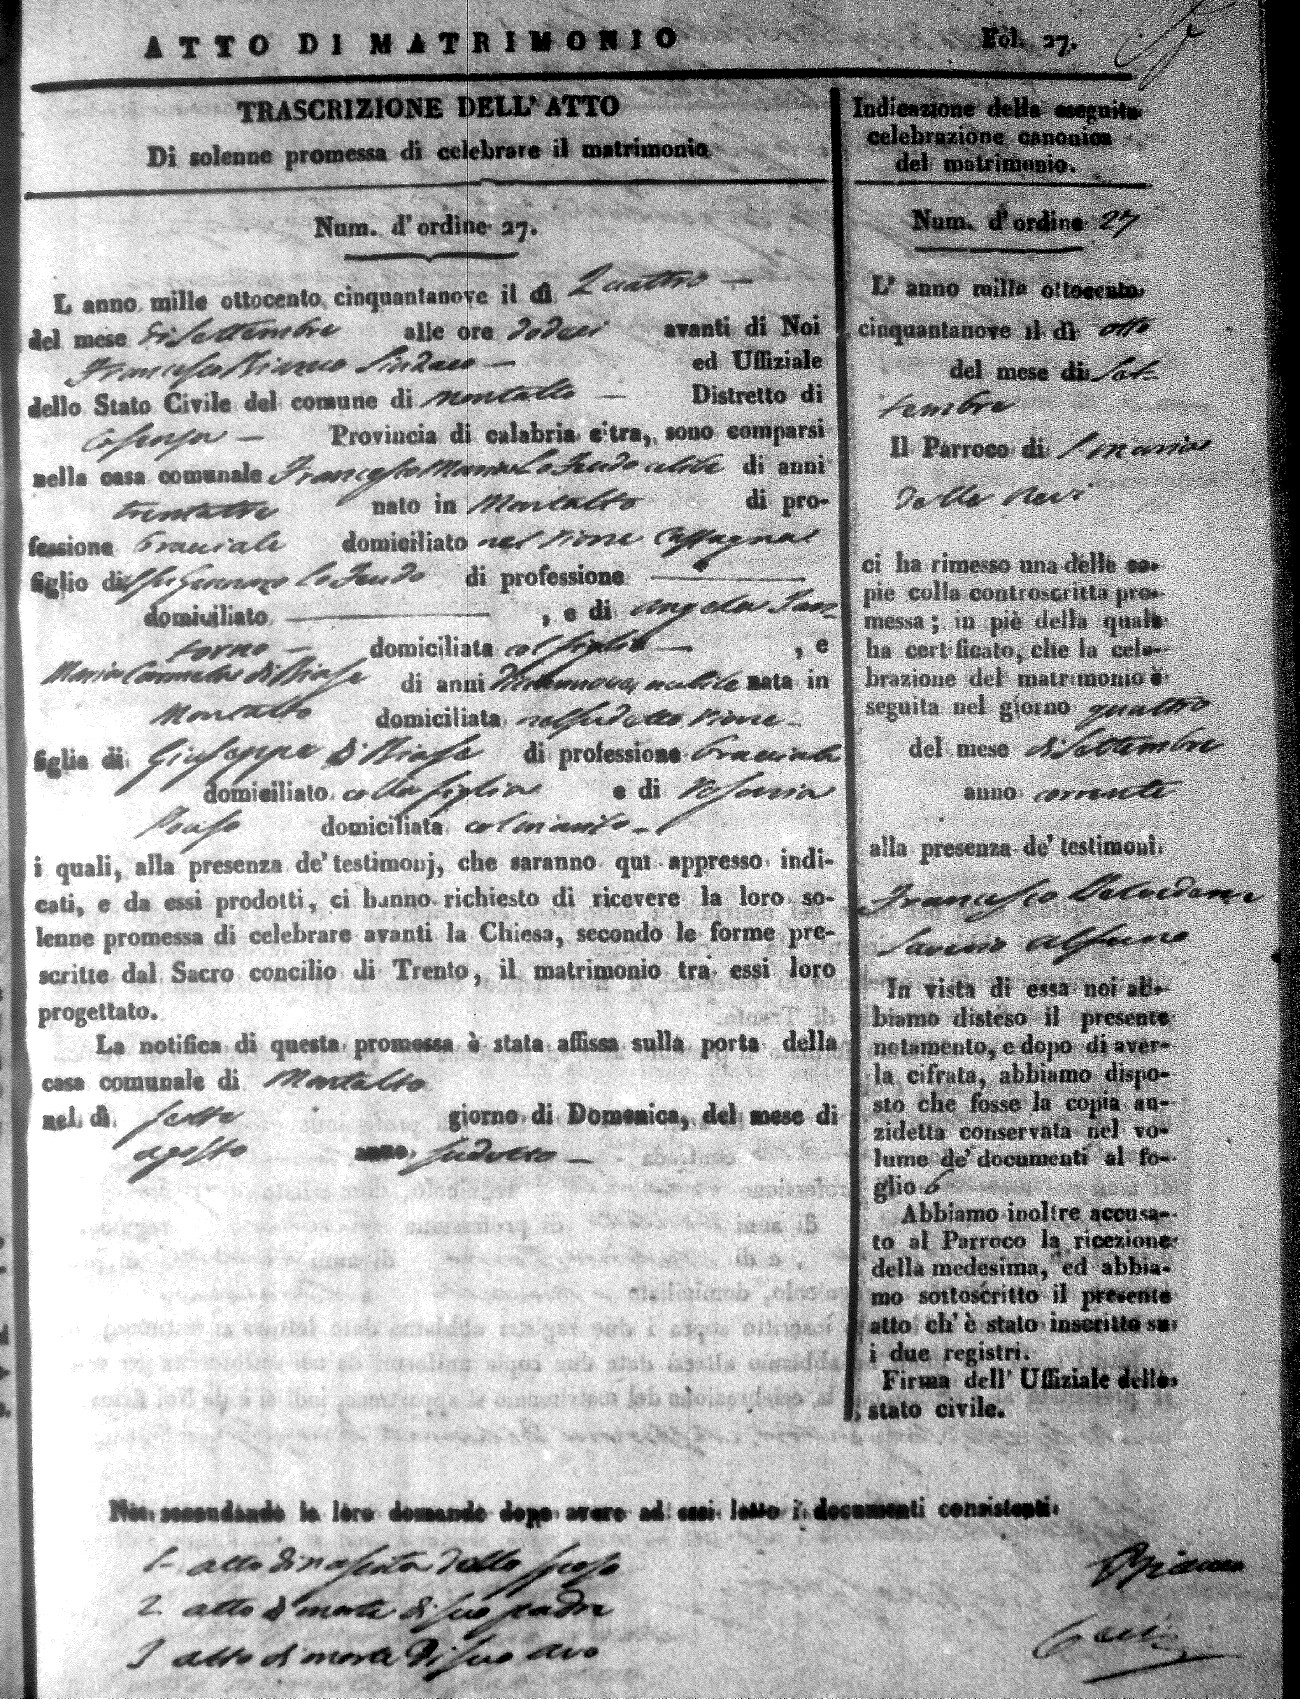 ATTO DI MATRIMONIO
Fol. 27.
TRASCRIZIONE DELL' ATTO
Di solenne promessa di celebrare il matrimonio
Num. d' ordine 27.
L anno mille ottocento cinquantanove il dì Quattro —
del mese di Settembre alle ore dodeci avanti di Noi
Francesco Bianco Sindaco — ed Uffiziale
dello Stato Civile del comune di Montalto — Distretto di
Cosenza — Provincia di calabria citra, sono comparsi
nella casa comunale Francesco Maria Lo Feudo celibe di anni
trentatre nato in Montalto di pro-
fessione bracciale domiciliato nel rione
figlio di Gennaro lo Feudo di professione —
domiciliato — , e di Angela San-
torno — domiciliata col figlio — , e
Maria Carmela di Biase di anni nubile nata in
Montalto domiciliata nel sudetto rione —
figlia di Giuseppe di Biase di professione bracciale
domiciliato colla figlia e di Rosaria
domiciliata col marito —
i quali, alla presenza de' testimonj, che saranno qui appresso indi-
cati, e da essi prodotti, ci hanno richiesto di ricevere la loro so-
lenne promessa di celebrare avanti la Chiesa, secondo le forme pre-
scritte dal Sacro concilio di Trento, il matrimonio tra essi loro
progettato.
La notifica di questa promessa è stata affissa sulla porta della
casa comunale di Montalto
nel dì sette giorno di Domenica, del mese di
agosto anno sudetto —
Indicazione della eseguita
celebrazione canonica
del matrimonio.
Num. d' ordine 27
L' anno mille ottocento
cinquantanove il dì otto
del mese di Set-
tembre
Il Parroco di S. Maria
della
ci ha rimesso una delle co-
pie colla controscritta pro-
messa; in piè della quale
ha certificato, che la cele-
brazione del matrimonio è
seguita nel giorno quattro
del mese di Settembre
anno corrente
alla presenza de' testimoni
Francesco
Saverio
In vista di essa noi ab-
biamo disteso il presente
notamento, e dopo di aver-
la cifrata, abbiamo dispo-
sto che fosse la copia an-
zidetta conservata nel vo-
lume de' documenti al fo-
glio 6
Abbiamo inoltre accusa-
to al Parroco la ricezione
della medesima, ed abbia-
mo sottoscritto il presente
atto ch' è stato inscritto su
i due registri.
Firma dell' Uffiziale dello
stato civile.
Noi secondando le loro domande dopo avere ad essi letto i documenti consistenti
1- atto di nascita dello sposo
2 atto di morte di suo padre
3 atto di morte di suo avo